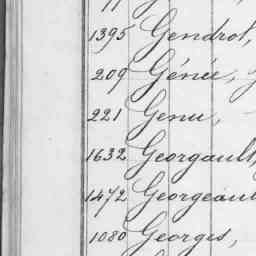 1395 Gendrot,
209 Génée,
221 Genu,
1632 Georgault,
1472 Georgeau
1080 Georges,